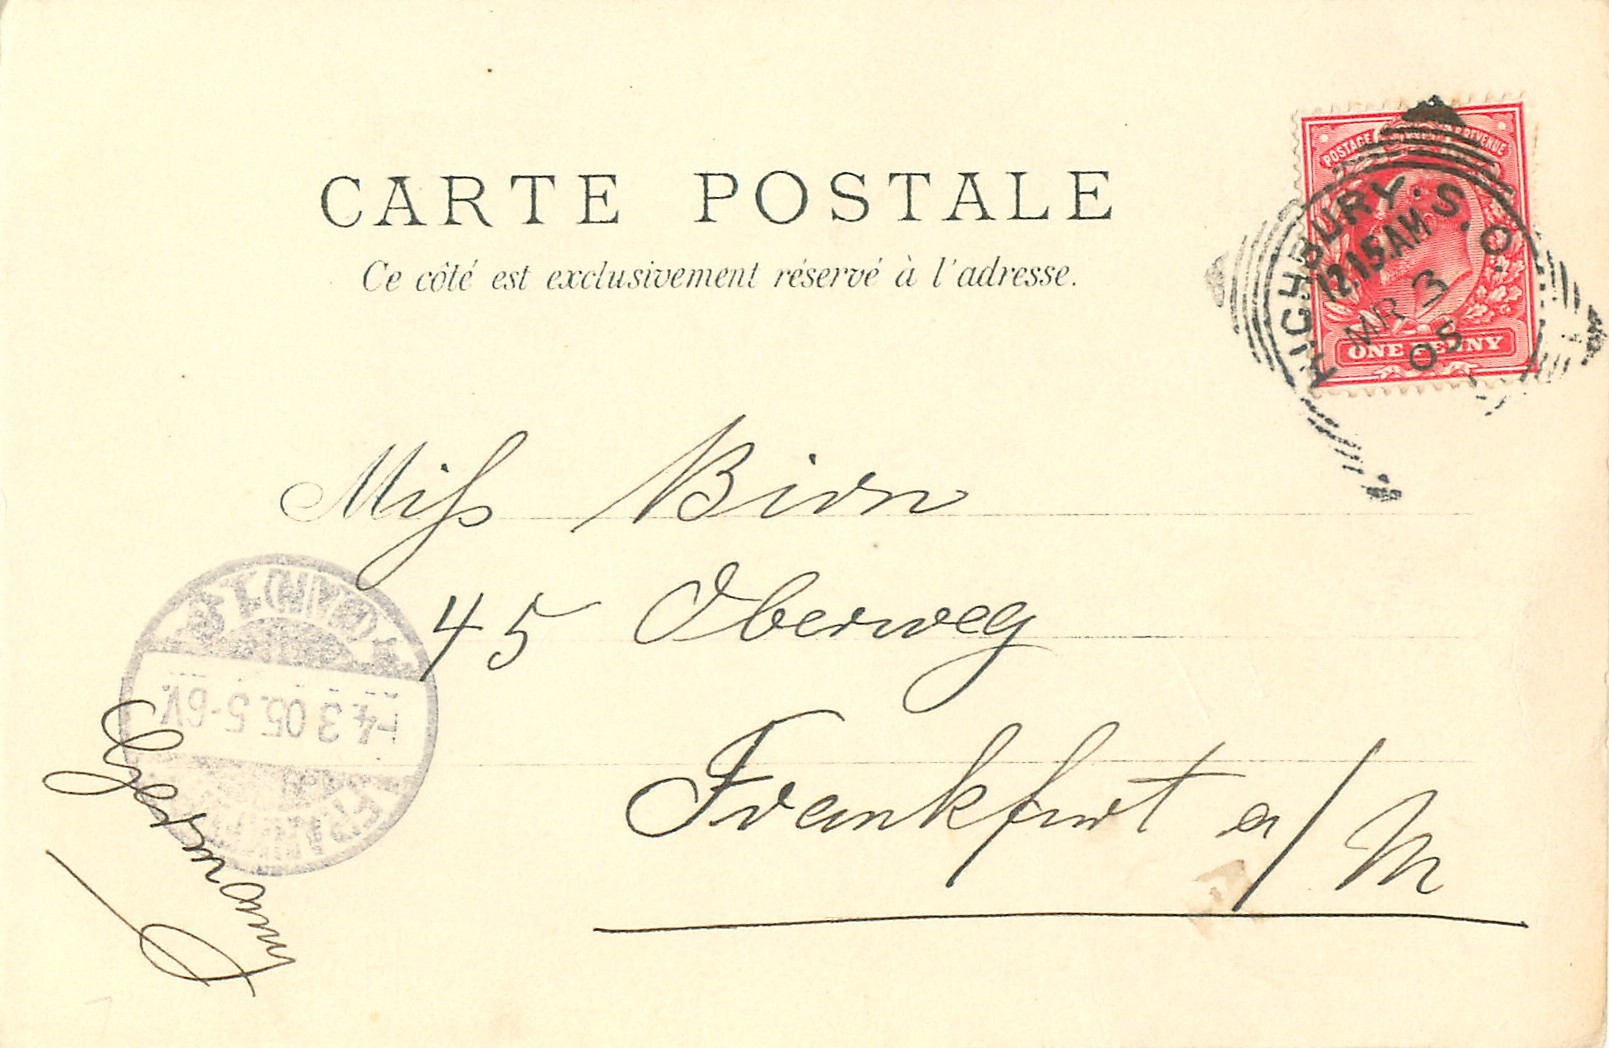 CARTE POSTALE
Ce côté est exclusivement réservé à l'adresse.
POSTAGE & REVENUE
ONE PENNY
HIGHBURY. S.O.
12.15 AM
MR 3
05
Miss Birn
45 Oberweg
Frankfurt a/M
Germany
FRANKFURT
(MAIN) 1
4.3.05. 5-6V.